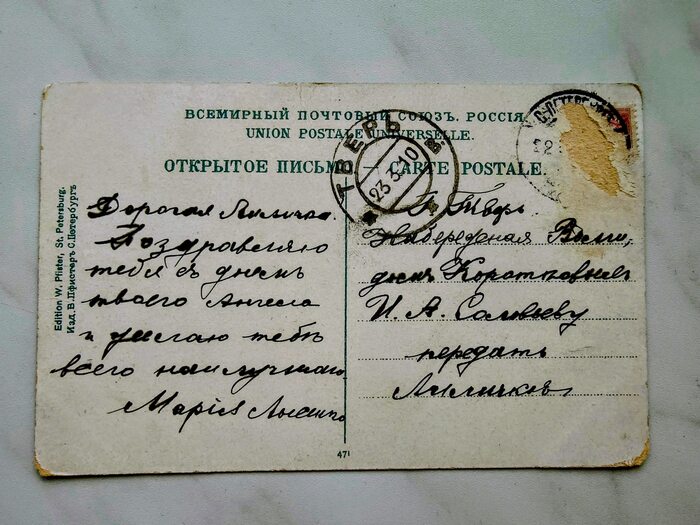 ВСЕМІРНЫЙ ПОЧТОВЫЙ СОЮЗЪ. РОССІЯ
UNION POSTALE UNIVERSELLE.
ОТКРЫТОЕ ПИСЬМО — CARTE POSTALE.
ТВЕРЬ
23.3.10
Edition W. Pfister, St. Petersburg.
Изд. В. Пфистеръ С.Петербургъ
Дорогая Лиличка.
Поздравляю
тебя съ днемъ
твоего Ангела
и желаю тебѣ
всего наилучшаго
Марія
Г. Тверь
Набережная
домъ
И. А. Соловьеву
передать
Лиличкѣ
471